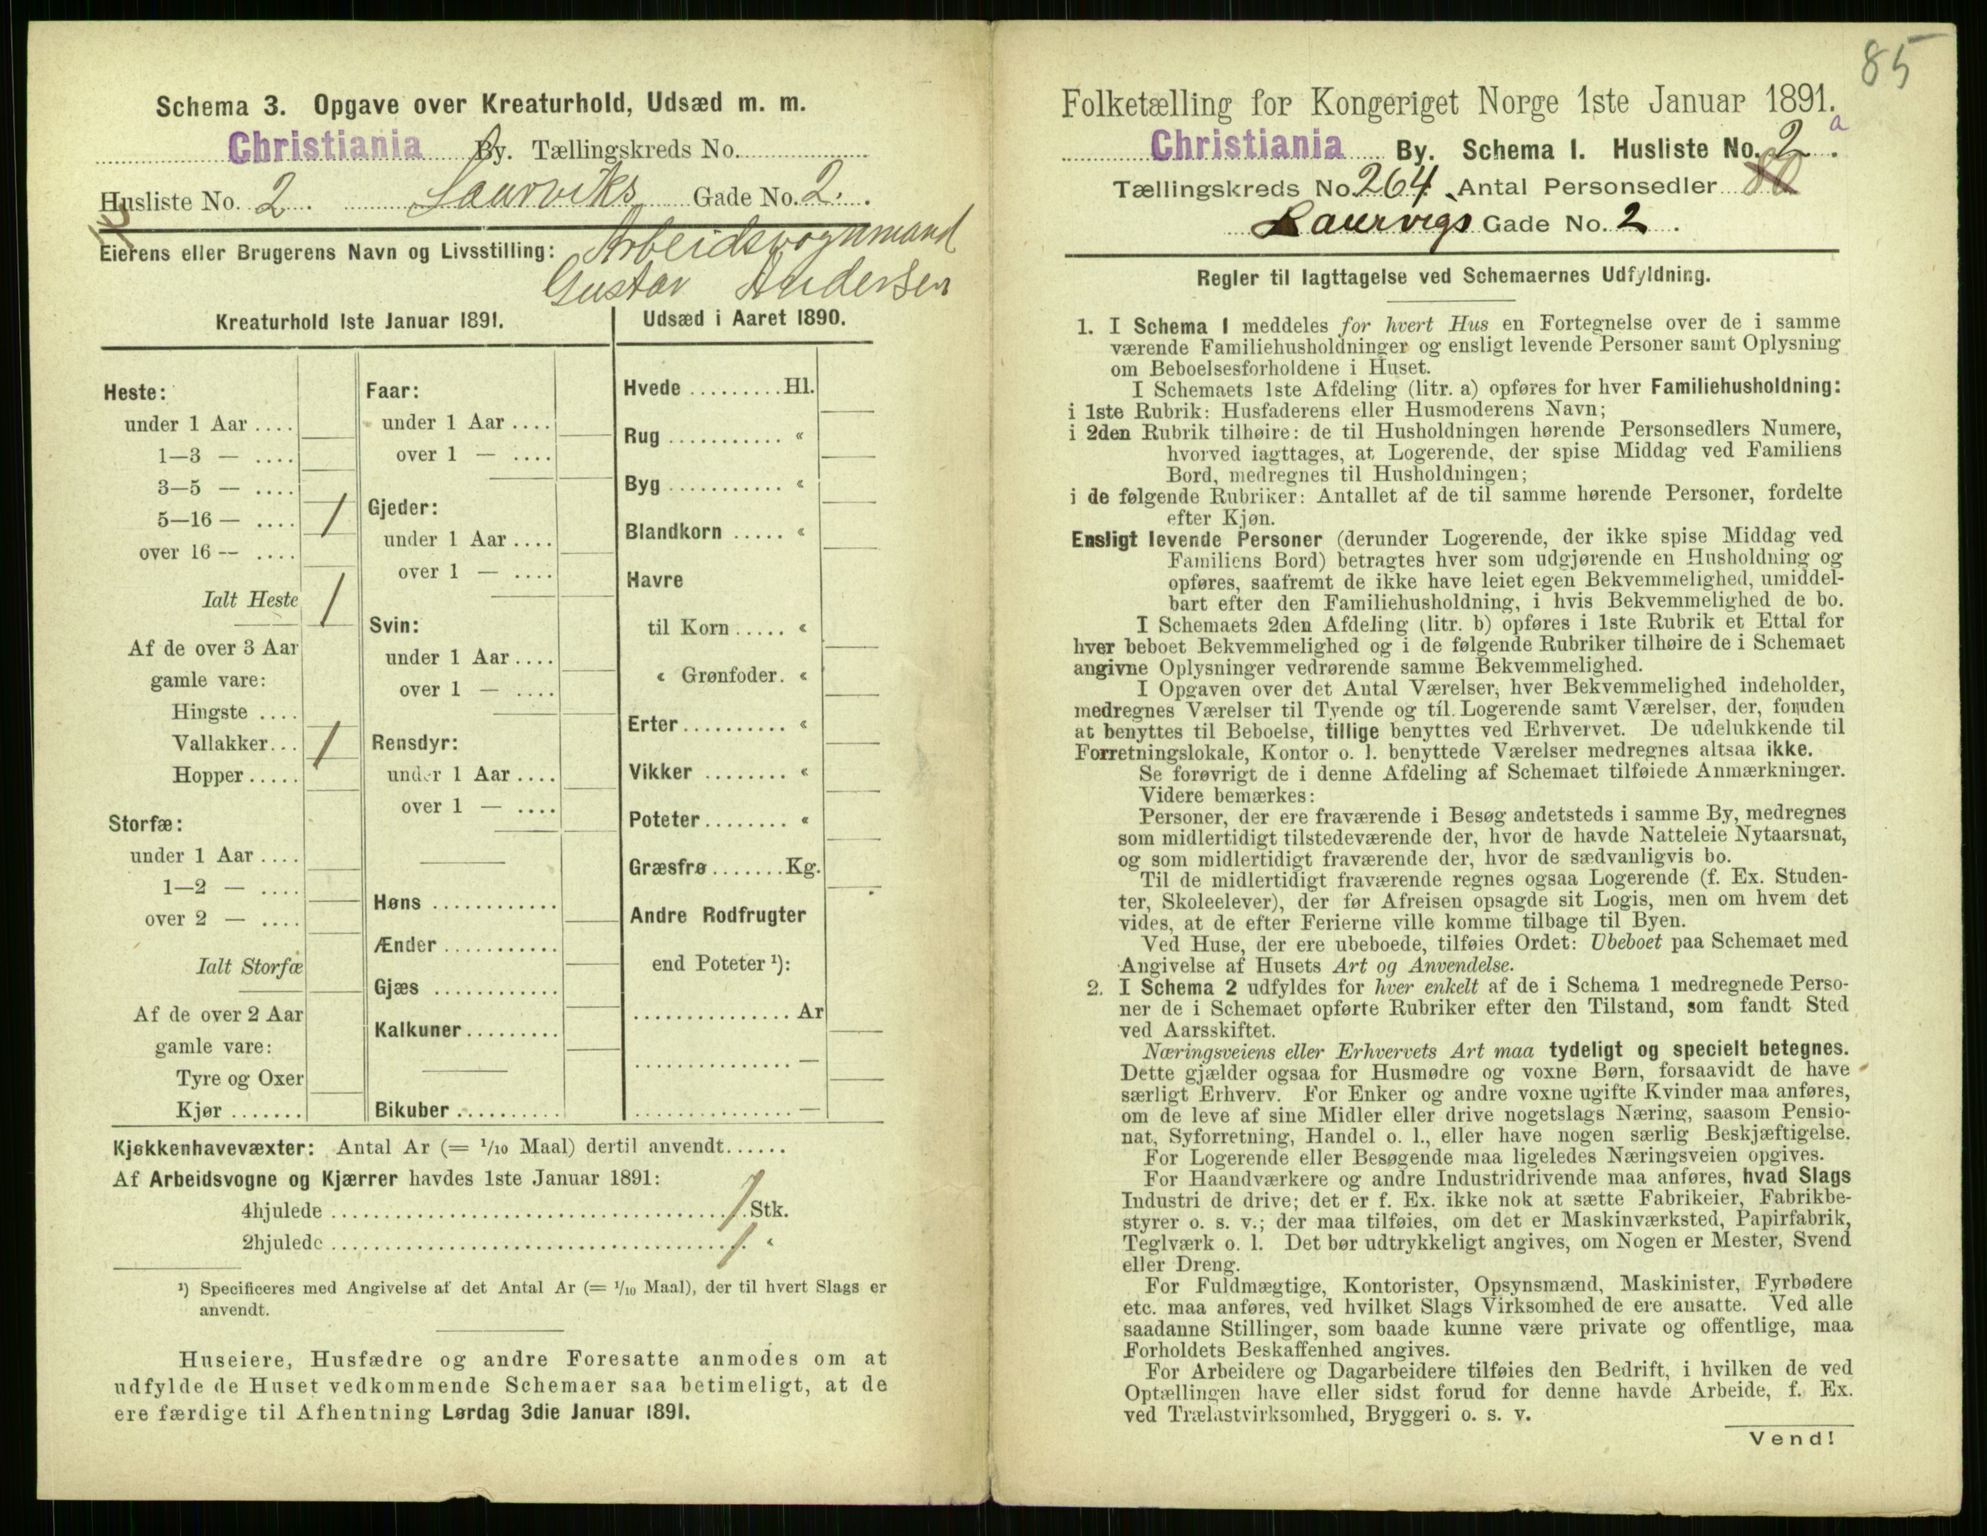 Schema 3. Opgave over Kreaturhold, Udsæd m. m.
Christiania By. Tællingskreds No.
Husliste No. 2. Laurviks Gade No. 2.
Eierens eller Brugerens Navn og Livsstilling: Arbeidsvognmand
Gustav Andersen
Kreaturhold 1ste Januar 1891.
Heste:
under 1 Aar ....
1—3 — ....
3—5 — ....
5—16 — .... 1
over 16 — ....
Ialt Heste 1
Af de over 3 Aar
gamle vare:
Hingste ....
Vallakker... 1
Hopper.....
Storfæ:
under 1 Aar ....
1—2 — ....
over 2 — ....
Ialt Storfæ
Af de over 2 Aar
gamle vare:
Tyre og Oxer
Kjør .......
Faar:
under 1 Aar ....
over 1 — ....
Gjeder:
under 1 Aar ....
over 1 — ....
Svin:
under 1 Aar ....
over 1 — ....
Rensdyr:
under 1 Aar ....
over 1 — ....
Høns ............
Ænder ...........
Gjæs ............
Kalkuner.........
Bikuber ..........
Udsæd i Aaret 1890.
Hvede .........Hl.
Rug ........... «
Byg ........... «
Blandkorn ..... «
Havre
til Korn ..... «
« Grønfoder. «
Erter.......... «
Vikker ........ «
Poteter........ «
Græsfrø .......Kg.
Andre Rodfrugter
end Poteter ¹):
............... Ar
............... —
............... —
Kjøkkenhavevæxter: Antal Ar (= 1/10 Maal) dertil anvendt......
Af Arbeidsvogne og Kjærrer havdes 1ste Januar 1891:
4hjulede .................... 1 Stk.
2hjulede .................... 1 «
¹) Specificeres med Angivelse af det Antal Ar (= 1/10 Maal), der til hvert Slags er
anvendt.
Huseiere, Husfædre og andre Foresatte anmodes om at
udfylde de Huset vedkommende Schemaer saa betimeligt, at de
ere færdige til Afhentning Lørdag 3die Januar 1891.
85
Folketælling for Kongeriget Norge 1ste Januar 1891.
Christiania By. Schema I. Husliste No. 2 a.
Tællingskreds No. 264. Antal Personsedler 80
Laurvigs Gade No. 2.
Regler til Iagttagelse ved Schemaernes Udfyldning.
1. I Schema 1 meddeles for hvert Hus en Fortegnelse over de i samme
værende Familiehusholdninger og ensligt levende Personer samt Oplysning
om Beboelsesforholdene i Huset.
I Schemaets 1ste Afdeling (litr. a) opføres for hver Familiehusholdning:
i 1ste Rubrik: Husfaderens eller Husmoderens Navn;
i 2den Rubrik tilhøire: de til Husholdningen hørende Personsedlers Numere,
hvorved iagttages, at Logerende, der spise Middag ved Familiens
Bord, medregnes til Husholdningen;
i de følgende Rubriker: Antallet af de til samme hørende Personer, fordelte
efter Kjøn.
Ensligt levende Personer (derunder Logerende, der ikke spise Middag ved
Familiens Bord) betragtes hver som udgjørende en Husholdning og
opføres, saafremt de ikke have leiet egen Bekvemmelighed, umiddel-
bart efter den Familiehusholdning, i hvis Bekvemmelighed de bo.
I Schemaets 2den Afdeling (litr. b) opføres i 1ste Rubrik et Ettal for
hver beboet Bekvemmelighed og i de følgende Rubriker tilhøire de i Schemaet
angivne Oplysninger vedrørende samme Bekvemmelighed.
I Opgaven over det Antal Værelser, hver Bekvemmelighed indeholder,
medregnes Værelser til Tyende og til Logerende samt Værelser, der, foruden
at benyttes til Beboelse, tillige benyttes ved Erhvervet. De udelukkende til
Forretningslokale, Kontor o. l. benyttede Værelser medregnes altsaa ikke.
Se forøvrigt de i denne Afdeling af Schemaet tilføiede Anmærkninger.
Videre bemærkes:
Personer, der ere fraværende i Besøg andetsteds i samme By, medregnes
som midlertidigt tilstedeværende der, hvor de havde Natteleie Nytaarsnat,
og som midlertidigt fraværende der, hvor de sædvanligvis bo.
Til de midlertidigt fraværende regnes ogsaa Logerende (f. Ex. Studen-
ter, Skoleelever), der før Afreisen opsagde sit Logis, men om hvem det
vides, at de efter Ferierne ville komme tilbage til Byen.
Ved Huse, der ere ubeboede, tilføies Ordet: Ubeboet paa Schemaet med
Angivelse af Husets Art og Anvendelse.
2. I Schema 2 udfyldes for hver enkelt af de i Schema 1 medregnede Perso-
ner de i Schemaet opførte Rubriker efter den Tilstand, som fandt Sted
ved Aarsskiftet.
Næringsveiens eller Erhvervets Art maa tydeligt og specielt betegnes.
Dette gjælder ogsaa for Husmødre og voxne Børn, forsaavidt de have
særligt Erhverv. For Enker og andre voxne ugifte Kvinder maa anføres,
om de leve af sine Midler eller drive nogetslags Næring, saasom Pensio-
nat, Syforretning, Handel o. l., eller have nogen særlig Beskjæftigelse.
For Logerende eller Besøgende maa ligeledes Næringsveien opgives.
For Haandværkere og andre Industridrivende maa anføres, hvad Slags
Industri de drive; det er f. Ex. ikke nok at sætte Fabrikeier, Fabrikbe-
styrer o. s. v.; der maa tilføies, om det er Maskinværksted, Papirfabrik,
Teglværk o. l. Det bør udtrykkeligt angives, om Nogen er Mester, Svend
eller Dreng.
For Fuldmægtige, Kontorister, Opsynsmænd, Maskinister, Fyrbødere
etc. maa anføres, ved hvilket Slags Virksomhed de ere ansatte. Ved alle
saadanne Stillinger, som baade kunne være private og offentlige, maa
Forholdets Beskaffenhed angives.
For Arbeidere og Dagarbeidere tilføies den Bedrift, i hvilken de ved
Optællingen have eller sidst forud for denne havde Arbeide, f. Ex.
ved Trælastvirksomhed, Bryggeri o. s. v.
Vend!